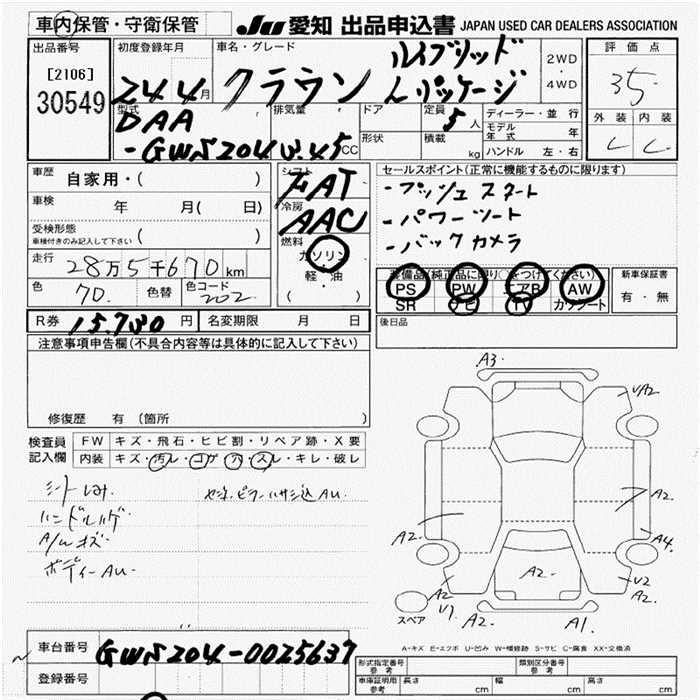 車内保管・守衛保管
JU 愛知 出品申込書 JAPAN USED CAR DEALERS ASSOCIATION
出品番号
[2106]
30549
初度登録年月
24 4月
車名・グレード
クラウン ハイブリッド Lパッケージ
2WD
・
4WD
評価点
3.5
外装 内装
型式
DAA
-GWS204
排気量
3.45 CC
ドア
形状
定員
5人
積載
kg
ディーラー・並行
モデル年式 年
ハンドル 左・右
車歴 自家用・( )
車検 年 月( 日)
受検形態
車検付きのみ記入して下さい ( )
走行 28万5千670km
色 70. 色替 色コード 202
シフト
FAT
冷房
AAC
燃料
ガソリン
・
軽・油
( )
セールスポイント(正常に機能するものに限ります)
・プッシュスタート
・パワーシート
・バックカメラ
装備品(純正品に限り○をつけてください)
PS PW エアB AW
SR ナビ TV カワシート
新車保証書
有・無
後日品
R券 15.730円 名変期限 月 日
注意事項申告欄(不具合内容等は具体的に記入して下さい)
修復歴 有(箇所 )
検査員記入欄
FW キズ・飛石・ヒビ割・リペア跡・X要
内装 キズ・汚レ・コゲ・穴・スレ・キレ・破レ
シート
ハンドルハゲ
A/Wキズ
ボディーAU.
A3.
UA2
A2
A2.
A4
A2.
A2
U1
U2
A2.
A2.
A1.
スペア
A-キズ E-エクボ U-凹み W-補修跡 S-サビ C-腐食 XX-交換済
車台番号 GWS204-0025637
登録番号
形式指定番号 参考
類別区分番号 参考
車庫証明用 参考 長さ cm 幅 cm 高さ cm